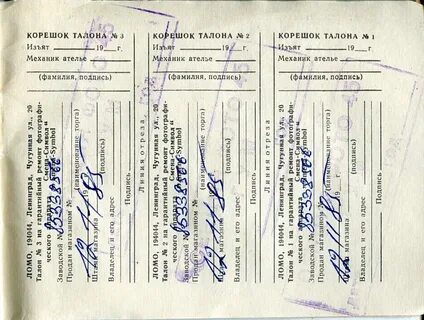 КОРЕШОК ТАЛОНА № 3
Изъят 19 г.
Механик ателье
(фамилия, подпись)
Линия отреза
ЛОМО, 194044, Ленинград, Чугунная ул., 20
Талон № 3 на гарантийный ремонт фотографи-
ческого аппарата „Смена-Символ“
Smena-Symbol
Заводской №
Продан магазином №
(наименование торга)
19 г.
Штамп магазина
(подпись)
Владелец и его адрес
Подпись
КОРЕШОК ТАЛОНА № 2
Изъят 19 г.
Механик ателье
(фамилия, подпись)
Линия отреза
ЛОМО, 194044, Ленинград, Чугунная ул., 20
Талон № 2 на гарантийный ремонт фотографи-
ческого аппарата „Смена-Символ“
Smena-Symbol
Заводской №
Продан магазином №
(наименование торга)
19 г.
Штамп магазина
(подпись)
Владелец и его адрес
Подпись
КОРЕШОК ТАЛОНА № 1
Изъят 19 г.
Механик ателье
(фамилия, подпись)
Линия отреза
ЛОМО, 194044, Ленинград, Чугунная ул., 20
Талон № 1 на гарантийный ремонт фотографи-
ческого аппарата „Смена-Символ“
Smena-Symbol
Заводской №
Продан магазином №
(наименование торга)
19 г.
Штамп магазина
(подпись)
Владелец и его адрес
Подпись